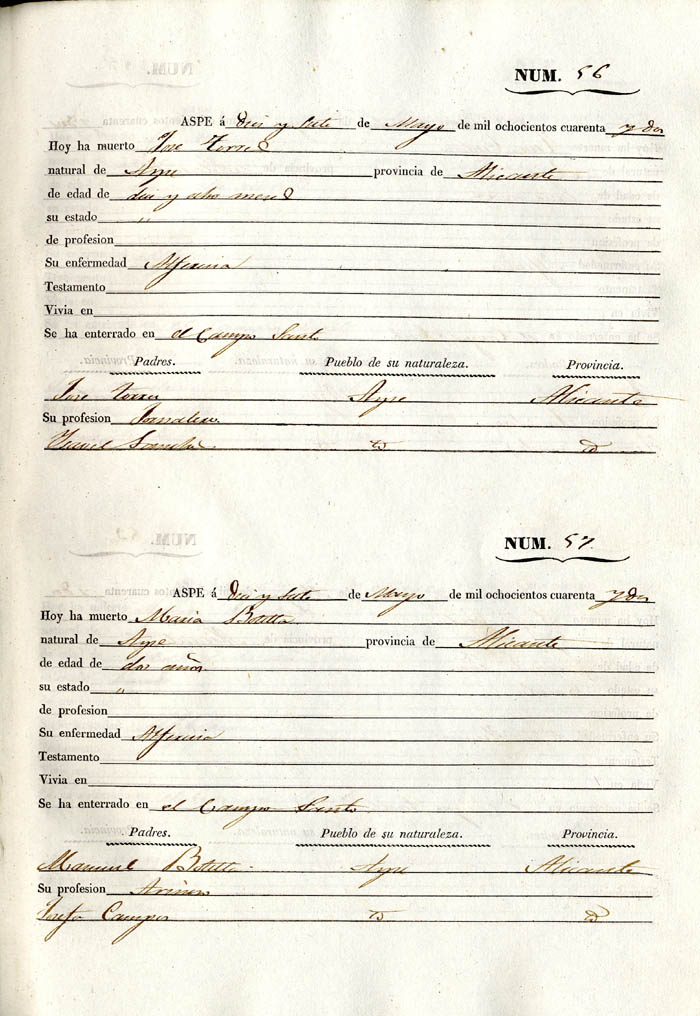 NUM. 56
ASPE á Diez y siete de Mayo de mil ochocientos cuarenta y dos
Hoy ha muerto José Torres
natural de Aspe provincia de Alicante
de edad de diez y ocho meses
su estado "
de profesion
Su enfermedad Alferecia
Testamento
Vivia en
Se ha enterrado en el Campo Santo
Padres. Pueblo de su naturaleza. Provincia.
José Torres Aspe Alicante
Su profesion Jornalero
Ysavel Sanchez id id
NUM. 57.
ASPE á Diez y siete de Mayo de mil ochocientos cuarenta y dos
Hoy ha muerto Maria Botella
natural de Aspe provincia de Alicante
de edad de dos años
su estado "
de profesion
Su enfermedad Alferecia
Testamento
Vivia en
Se ha enterrado en el Campo Santo
Padres. Pueblo de su naturaleza. Provincia.
Manuel Botella Aspe Alicante
Su profesion Arriero
Josefa Campos id id